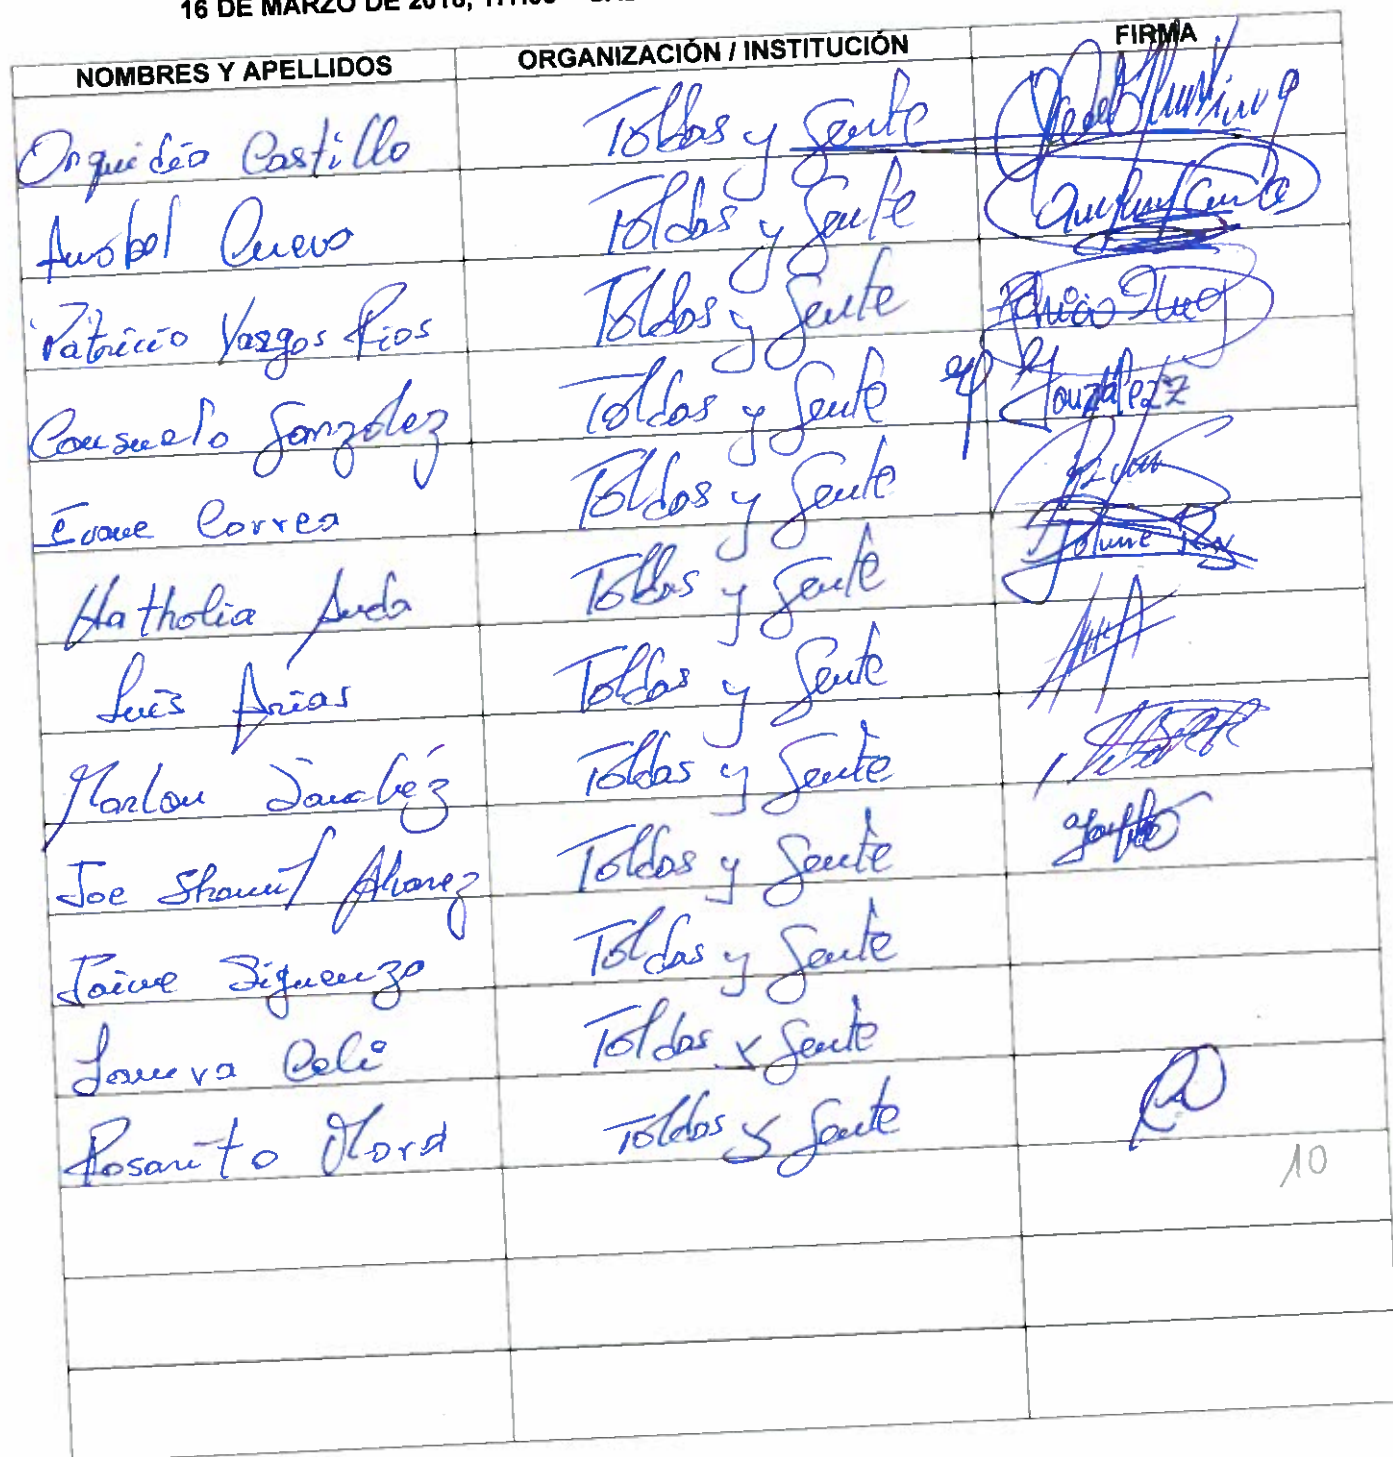 16 DE MARZO DE 2018,
NOMBRES Y APELLIDOS ORGANIZACIÓN / INSTITUCIÓN FIRMA
Orquidea Castillo Toldas y Gente
Anabel Cueva Toldas y Gente
Patricio Vargas Rios Toldas y Gente
Consuelo González Toldas y Gente González
Ivone Correa Toldas y Gente
Nathalia Toldas y Gente
Luis Arias Toldas y Gente
Marlon Sánchez Toldas y Gente
Joe Alvarez Toldas y Gente
Jaime Siguenza Toldas y Gente
Celi Toldas y Gente
Rosarito Mora Toldas y Gente
10